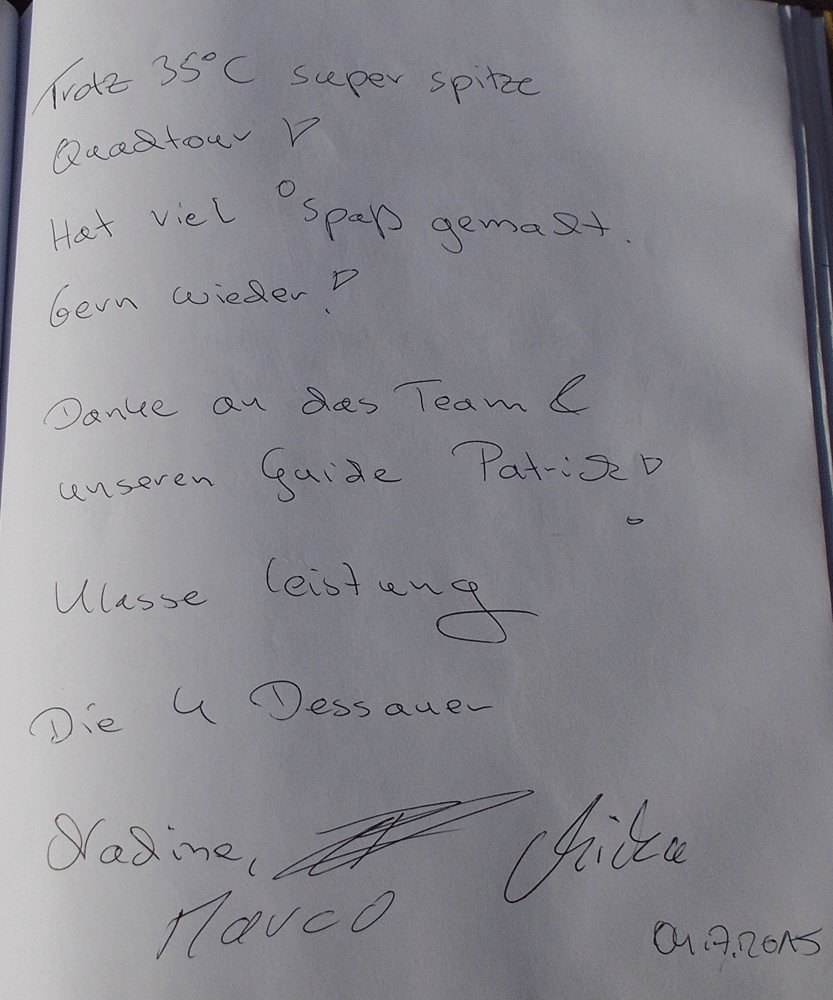 Trotz 35°C super spitze
Quadtour!
Hat viel Spaß gemacht.
Gern wieder!
Danke an das Team &
unseren Guide Patrick!
Klasse Leistung
Die 4 Dessauer
Nadine,
Marco
04.7.2015